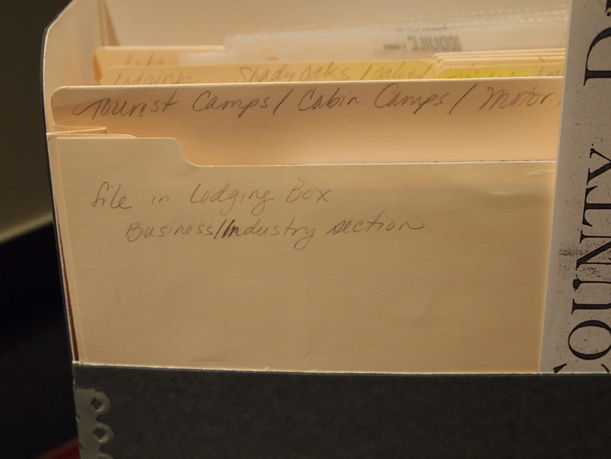 Shady Oaks /
Tourist Camps / Cabin Camps / Motor
file in Lodging Box
Business/Industry section
COUNTY